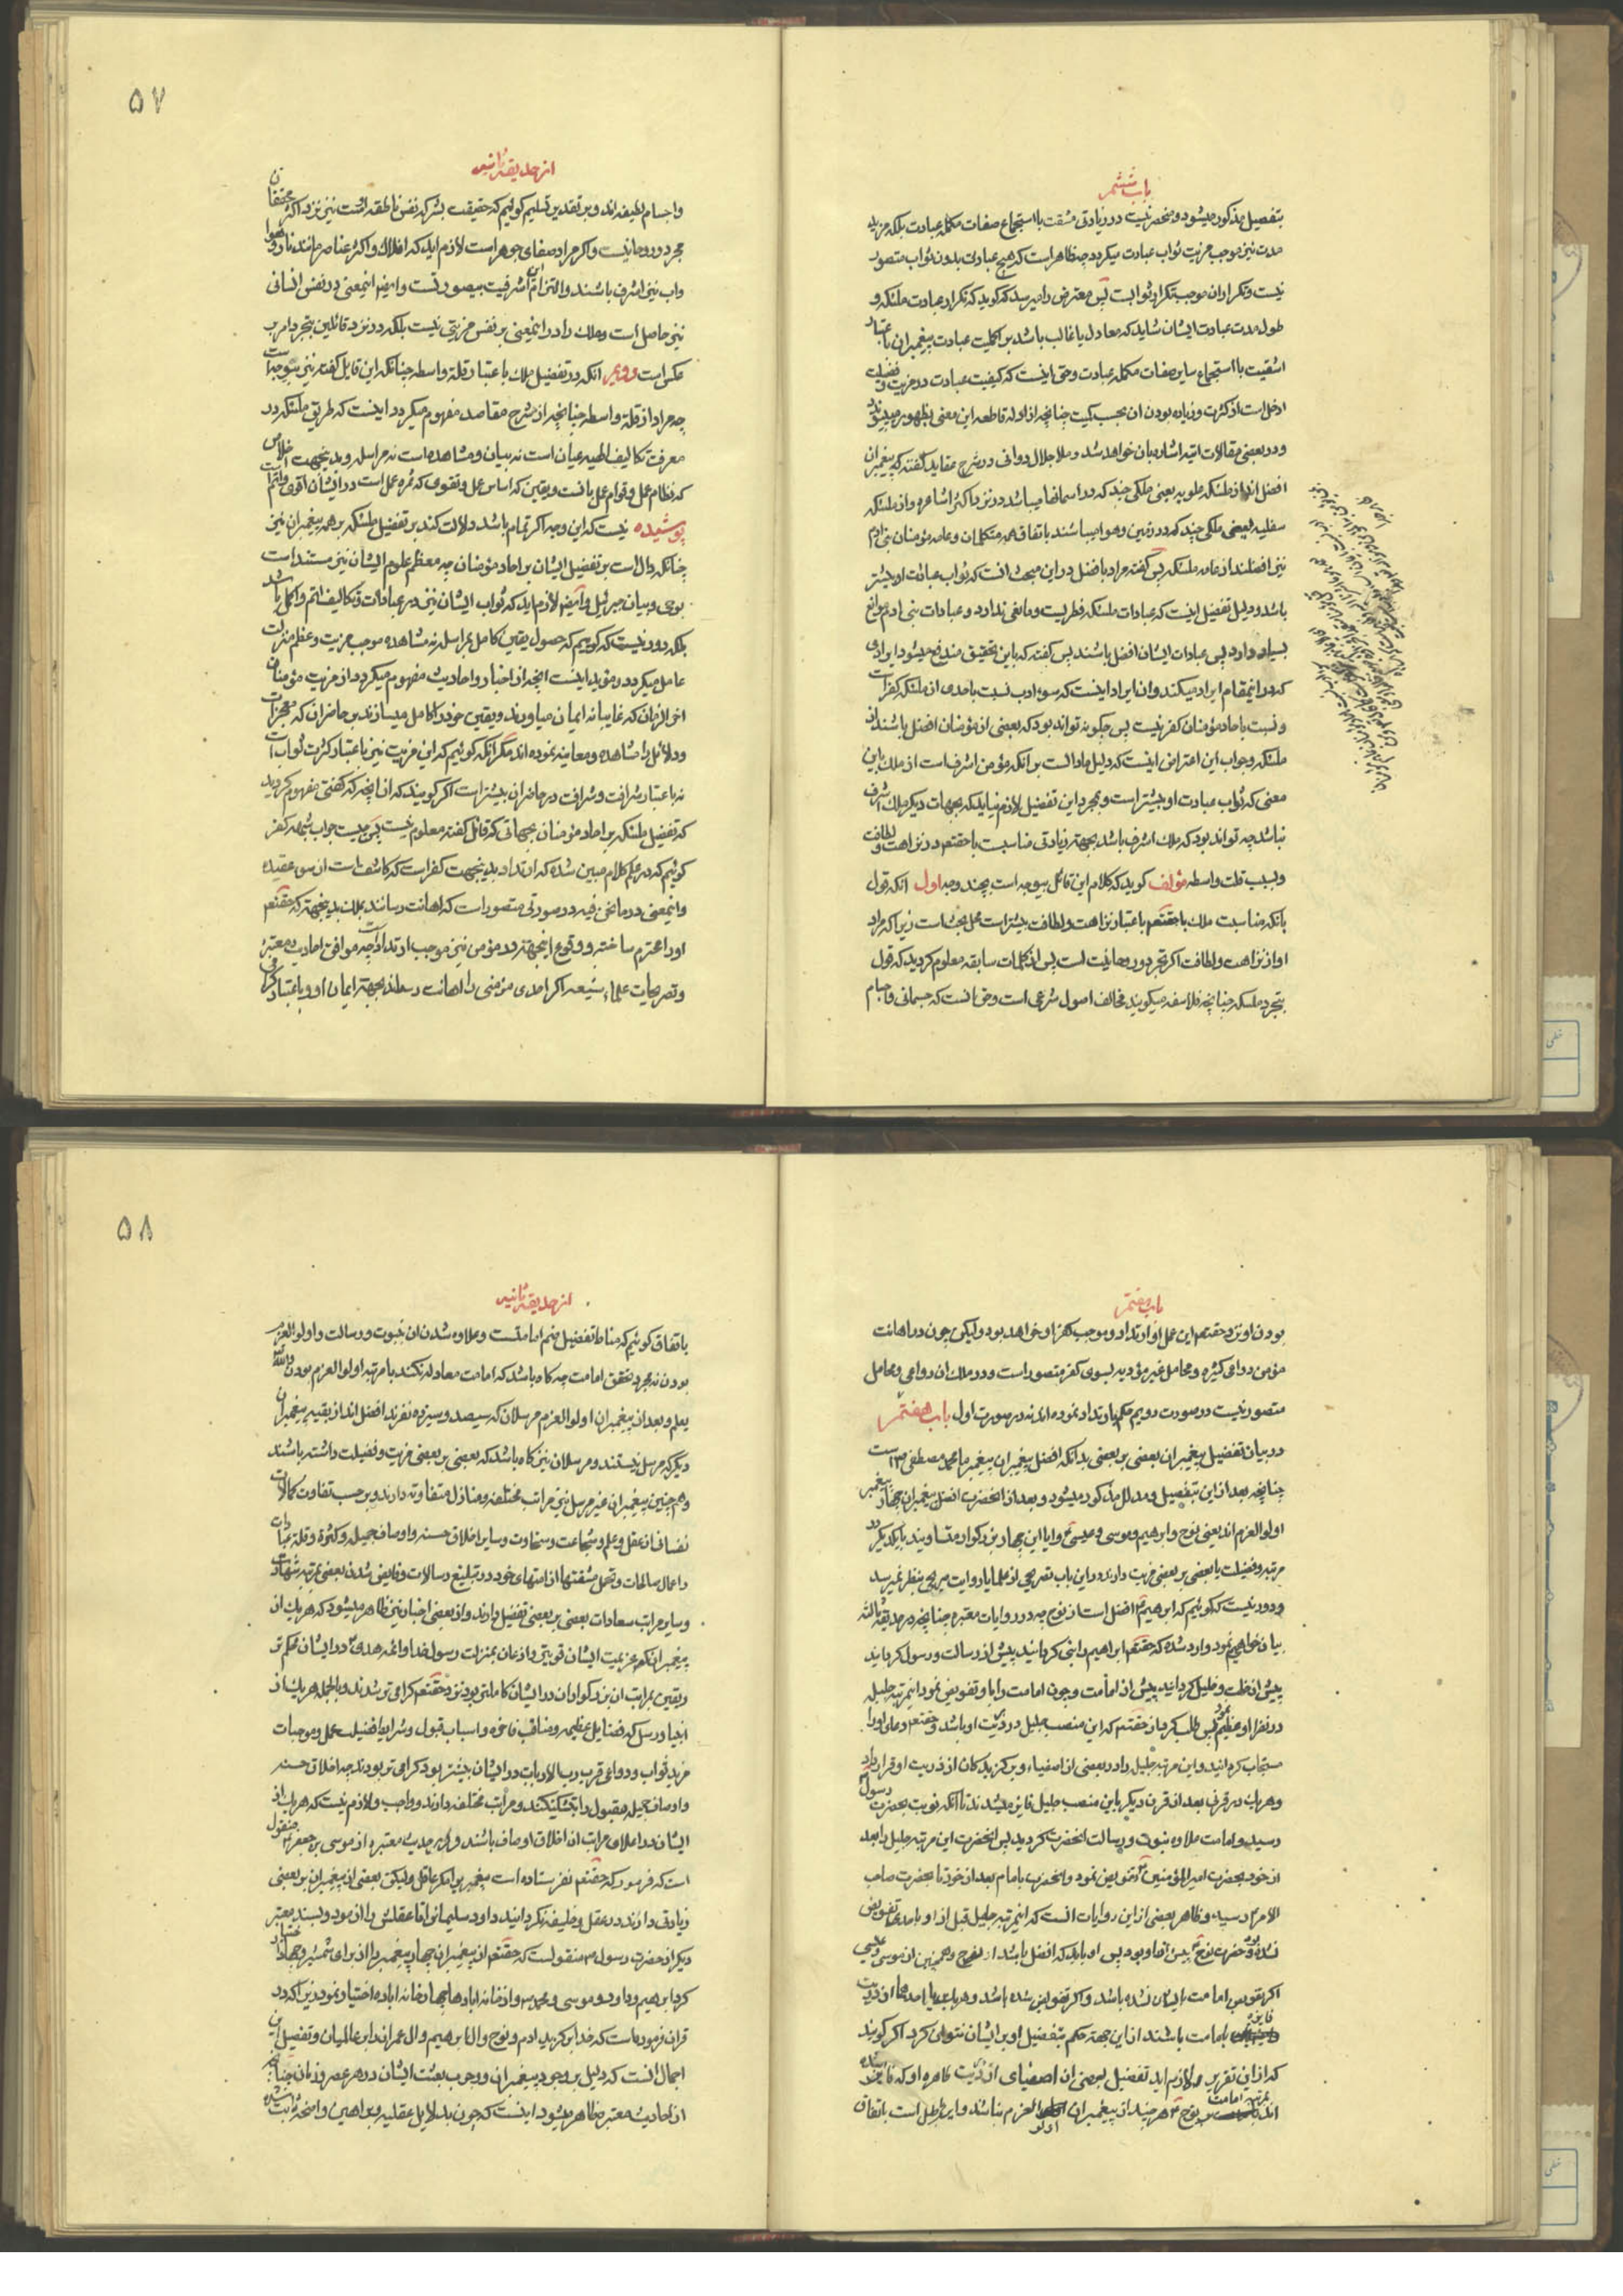 باب ششم
بتفصیل مذکور میشود و منحصر نیست در زیادتی مشقت با استجماع صفات مکمله عبادت بلکه مزید
مدت نیز موجب مزیت ثواب عبادت میگردد چه ظاهر است که هیچ عبادتی بدون ثواب متصور
نیست و تکرار ان موجب تکرار ثوابست پس معترض را میرسد که گوید که تکرار عبادت ملئکه و
طول مدت عبادت ایشان شاید که معادل یا غالب باشد بر اکملیت عبادت پیغمبران باعتبار
اشقیت با استجماع سایر صفات مکمله عبادت و حق اینست که کیفیت عبادت در مزیت و فضیلت
ادخل است از کثرت و زیاده بودن ان بحسب کمیت چنانچه از ادله قاطعه این معنی بظهور میپیوندد
و در بعضی مقالات اتیه اشاره بان خواهد شد و ملا جلال دوانی در شرح عقاید گفته که پیغمبران
افضل اند از ملئکه علویه یعنی ملکی چند که در اسمانها میباشند در نزد اکثر اشاعره و از ملئکه
سفلیه یعنی ملکی چند که در زمین و هوا میباشند باتفاق همه متکلمان و عامه مؤمنان بنی ادم
نیز افضلند از عامه ملئکه پس گفته مراد بافضل در این مبحث انست که ثواب عبادت او بیشتر
باشد و دلیل تفضیل اینست که عبادات ملئکه فطریست و مانعی ندارد و عبادات بنی ادم موانع
بسیار دارد پس عبادات ایشان افضل باشند پس گفته که باین تحقیق مندفع میشود ایرادی
که در اینمقام ایراد میکنند و ان ایراد اینست که سوء ادب نسبت باحدی از ملئکه کفر است
و نسبت باحاد مؤمنان کفر نیست پس چگونه تواند بود که بعضی از مؤمنان افضل باشند از
ملئکه و جواب این اعتراض اینست که دلیل ما دالست بر انکه مؤمن اشرف است از ملک باین
معنی که ثواب عبادت او بیشتر است و بمجرد این تفضیل لازم نیاید که بجهات دیگر ملک اشرف
نباشد چه تواند بود که ملک اشرف باشد بجهت زیادتی مناسبت با حقتعم در نزاهت و لطافت
و بسبب قلت واسطه مؤلف گوید که کلام این قائل بیوجه است بچند وجه اول انکه قول
بانکه مناسبت ملک با حقتعم باعتبار نزاهت و لطافت بیشتر است محل بحث است زیرا که مراد
او از نزاهت و لطافت اکر تجرد و روحانیت است پس از کلمات سابقه معلوم گردید که قول
بتجرد ملئکه چنانچه فلاسفه میگویند مخالف اصول شرعی است و حق انست که جسمانی و اجسام
۵۷
از حدیقه ثانیه
و اجسام لطیفه اند و بر تقدیر تسلیم گوئیم که حقیقت بشر که نفس ناطقه اوست نیز نزد اکثر محققان
مجرد و روحانیست و اکر مراد صفای جوهر است لازم اید که افلاک و اکثر عناصر مانند نار و هوا
و اب نیز اشرف باشند و التزام این اشرفیت بیصورتست و ایضا اینمعنی در نفس انسانی
نیز حاصل است و ملک را در اینمعنی بر نفس مزیتی نیست بلکه در نزد قائلین بتجرد امر بر
عکس است دویم انکه در تفضیل ملک باعتبار قلة واسطه چنانکه این قایل گفته نیز بیوجه است
چه مراد از قلة واسطه چنانچه از شرح مقاصد مفهوم میگردد اینست که طریق ملئکه در
معرفت تکالیف الهیه عیان است نه بیان و مشاهده است نه مراسله و بدینجهت اخلاص
که نظام عمل و قوام عمل بانست و یقین که اساس عمل و تقوی که ثمره عمل است در ایشان اقوی و اتم است
پوشیده نیست که این وجه اکر تمام باشد دلالت کند بر تفضیل ملئکه بر همه پیغمبران نیز
چنانکه دال است بر تفضیل ایشان بر احاد مؤمنان چه معظم علوم ایشان نیز مستند است
بوحی و بیان جبرئیل و ایضا لازم اید که ثواب ایشان نیز در عبادات و تکالیف اتم و اکمل باشد
بلکه دور نیست که گوییم که حصول یقین کامل بمراسله نه مشاهده موجب مزیت و عظم منزلت
عامل میگردد و مؤید اینست انچه از اخبار و احادیث مفهوم میگردد از مزیت مؤمنان
اخر الزمان که غایبانه ایمان میاورند و یقین خود را کامل میسازند بر حاضران که معجزات
و دلائل را مشاهده و معاینه نموده اند مگر انکه گوئیم که این مزیت نیز باعتبار کثرت ثواب است
نه باعتبار شرافت و شرافت در حاضران بیشتر است اکر گویند که از انچه که گفتی مفهوم گردید
که تفضیل ملئکه بر احاد مؤمنان بجهاتی که قائل گفته معلوم نیست پس چیست جواب شبهه کفر
گوئیم که در علم کلام مبین شده که ارتداد بدینجهت کفر است که کاشف است از سوء عقیده
و اینمعنی در ما نحن فیه در صورتی متصور است که اهانت رسانند بملک بدینجهت که حقتعم
او را محترم ساخته و وقوع اینجهت در مؤمن نیز موجب ارتداد است چه موافق احادیث معتبره
و تصریحات علماء شیعه اکر احدی مؤمنی را اهانت رساند بجهت ایمان او و باعتبار گرامی
باب هفتم
بودن او نزد حقتعم این عمل او ارتداد و موجب کفر او خواهد بود ولیکن چون در اهانت
مؤمن دواعی کثیره و محامل غیر مؤدیه بسوی کفر متصور است و در ملک ان دواعی و محامل
متصور نیست در صورت دویم حکم بارتداد نموده اند نه در صورت اول باب هفتم
در بیان تفضیل پیغمبران بعضی بر بعضی بدانکه افضل پیغمبران پیغمبر ما محمد مصطفی ص است
چنانچه بعد از این بتفصیل و مدلل مذکور میشود و بعد از انحضرت افضل پیغمبران چهار پیغمبر
اولوا العزم اند یعنی نوح و ابرهیم و موسی و عیسی ع و ایا این چهار بزرکوار متساویند با یکدیگر در
مرتبه و فضیلت یا بعضی بر بعضی مزیت دارند در این باب تصریحی از علما یا روایت صریحی بنظر نمیرسد
و دور نیست که گوئیم که ابرهیم ع افضل است از نوح چه در روایات معتبره چنانچه در حدیقه ثالثه
بیان خواهیم نمود وارد شده که حقتعم ابراهیم را نبی گردانید پیش از رسالت و رسول گردانید
پیش از خلت و خلیل گردانید پیش از امامت و چون امامت را باو تفویض نمود اینمرتبه جلیله
در نظر او عظیم نمود پس طلب کرد از حقتعم که این منصب جلیل در ذریت او باشد و حقتعم دعای او را
مستجاب گردانید و این مرتبه جلیل را در بعضی از اصفیاء و برگزیدگان از ذریت او قرار داد
و هر یک در قرنی بعد از قرن دیگر باین منصب جلیل فایز میشدند تا انکه نوبت بحضرت رسول ص
رسید و امامت علاوه نبوت و رسالت انحضرت گردید پس انحضرت این مرتبه جلیل را بعد
از خود بحضرت امیر المؤمنین ع تفویض نمود و انحضرت بامام بعد از خود تا بحضرت صاحب
الامر ع رسید و ظاهر بعضی از این روایات انست که اینمرتبه جلیل قبل از او باحدی تفویض
نشده بود و حضرت نوح ع پیش از او بود پس او باید که افضل باشد از نوح و همچنین از موسی و عیسی
اکر تفویض امامت بایشان نشده باشد و اکر تفویض شده باشد و هر یک یا احدهما از ذریت
فایز بامامت باشند از این جهة حکم بتفضیل او بر ایشان نتوان کرد اکر گویند
که از این تقریر لازم اید تفضیل بعضی از اصفیای از ذریت طاهره او که فایز شده
اند بمرتبه امامت بر نوح ع هر چند از پیغمبران اولو العزم نباشند و این باطل است باتفاق
۵۸
از حدیقه ثانیه
باتفاق گوئیم که مناط تفضیل ضم امامتست و علاوه شدن ان بنبوت و رسالت و اولو العزم
بودن نه مجرد تحقق امامت چه گاه باشد که امامت معادله نکند با مرتبه اولو العزم بودن والله
یعلم و بعد از پیغمبران اولو العزم مرسلان که سیصد و سیزده نفرند افضل اند از بقیه پیغمبران
دیگر که مرسل نیستند و مرسلان نیز گاه باشد که بعضی بر بعضی مزیت و فضیلت داشته باشند
و همچنین پیغمبران غیر مرسل نیز مراتب مختلفه و منازل متفاوته دارند و بر حسب تفاوت کمالات
نفسانی از عقل و علم و شجاعت و سخاوت و سایر اخلاق حسنه و اوصاف جمیله و کثرة و قلة عبادات
و اعمال صالحات و تحمل مشقتها از امتهای خود در تبلیغ رسالات و فایض شدن بعضی بمرتبه شهادت
و سایر مراتب سعادات بعضی بر بعضی تفضیل دارند و از بعضی اخبار نیز ظاهر میشود که هر یک از
پیغمبران که عزیمت ایشان قویتر و اذعان بمنزلت رسول خدا و ائمه هدی ع در ایشان محکم تر
و یقین بمراتب ان بزرکواران در ایشان کاملتر بود نزد حقتعم گرامی تر شدند و بالجمله هر یک از
انبیا و رسل که فضایل عظیمه و مناقب فاخره و اسباب قبول و شرایط افضلیت عمل و موجبات
مزید ثواب و دواعی قرب رب الارباب در ایشان بیشتر بود گرامی تر بودند چه اخلاق حسنه
و اوصاف جمیله مقبول را تشکیکند و مراتب مختلفه دارند و واجب و لازم نیست که هر یک از
ایشان در اعلای مراتب ان اخلاق و اوصاف باشند و در حدیث معتبره از موسی بن جعفر ع منقول
است که فرمود که حقتعم نفرستاده است پیغمبری را مگر عاقل ولیکن بعضی از پیغمبران بر بعضی
زیادتی دارند در عقل و خلیفه نگردانید داود سلیمان را تا عقلش را ازمود و بسند معتبر
دیگر از حضرت رسول ص منقولست که حقتعم از پیغمبران چهار پیغمبر را از برای شمشیر و جهاد اختیار
کرد ابرهیم و داود و موسی و محمد ص و از خانه ابادها چهار خانه اباده اختیار نمود زیرا که در
قران فرموده است که خدا برگزید ادم و نوح و ال ابرهیم و ال عمران را بر عالمیان و تفصیل این
اجمال انست که دلیل بر وجود پیغمبران و وجوب بعثت ایشان در هر عصر و زمان چنانچه
از احادیث معتبره ظاهر میشود اینست که چون بدلایل عقلیه و براهین واضحه ثابت شده